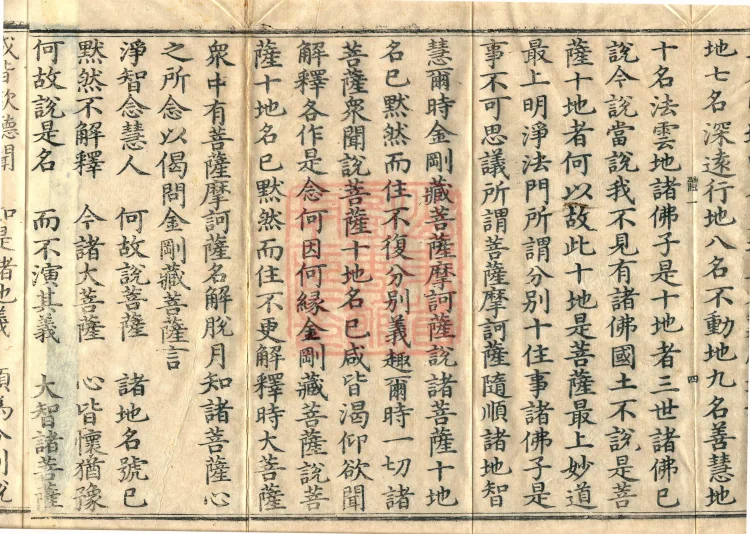 地七名深遠行地八名不動地九名善慧地
十名法雲地諸佛子是十地者三世諸佛已
說今說當說我不見有諸佛國土不說是菩
薩十地者何以故此十地是菩薩最上妙道
最上明淨法門所謂分別十住事諸佛子是
事不可思議所謂菩薩摩訶薩隨順諸地智
慧爾時金剛藏菩薩摩訶薩說諸菩薩十地
名已默然而住不復分別義趣爾時一切諸
菩薩衆聞說菩薩十地名已咸皆渴仰欲聞
解釋各作是念何因何緣金剛藏菩薩說菩
薩十地名已默然而住不更解釋時大菩薩
衆中有菩薩摩訶薩名解脫月知諸菩薩心
之所念以偈問金剛藏菩薩言
淨智念慧人 何故說菩薩 諸地名號已
默然不解釋 今諸大菩薩 心皆懷猶豫
何故說是名 而不演其義 大智諸菩薩
咸皆欲聽聞 如是諸地義 願爲分別說
四